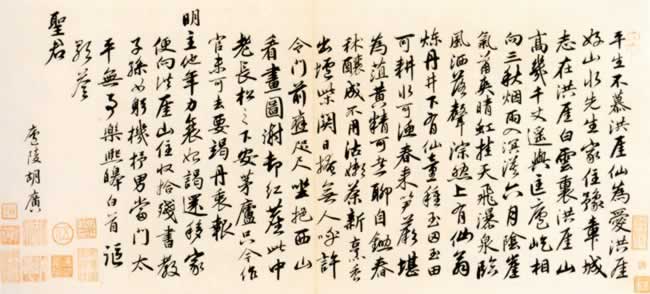 平生不慕洪崖仙為愛洪崖
好山水先生家住豫章城
志在洪崖白雲裏洪崖山
高幾千丈遙與匡廬屹相
向三秋烟雨入溟濛六月陰崖
氣蕭爽晴虹挂天飛瀑泉臨
風洒落聲淙然上有仙翁
煉丹井下有仙童種玉田玉田
可耕水可漁春來笋蕨堪
為葅黃精可聊自春
秫釀成不用沽嫩茶新香
出壚柴關日掩無人呼許
令門前咫尺坐把西山
看畫圖謝却紅塵此中
老長松之下安茅廬只今作
官未可去要竭丹衷報
明主他年力衰如謁還移家
便向洪崖山住收拾殘書教
子孫躬機杼男當門太
平無事樂熙皞白首謳
歌答
聖君
廬陵胡廣